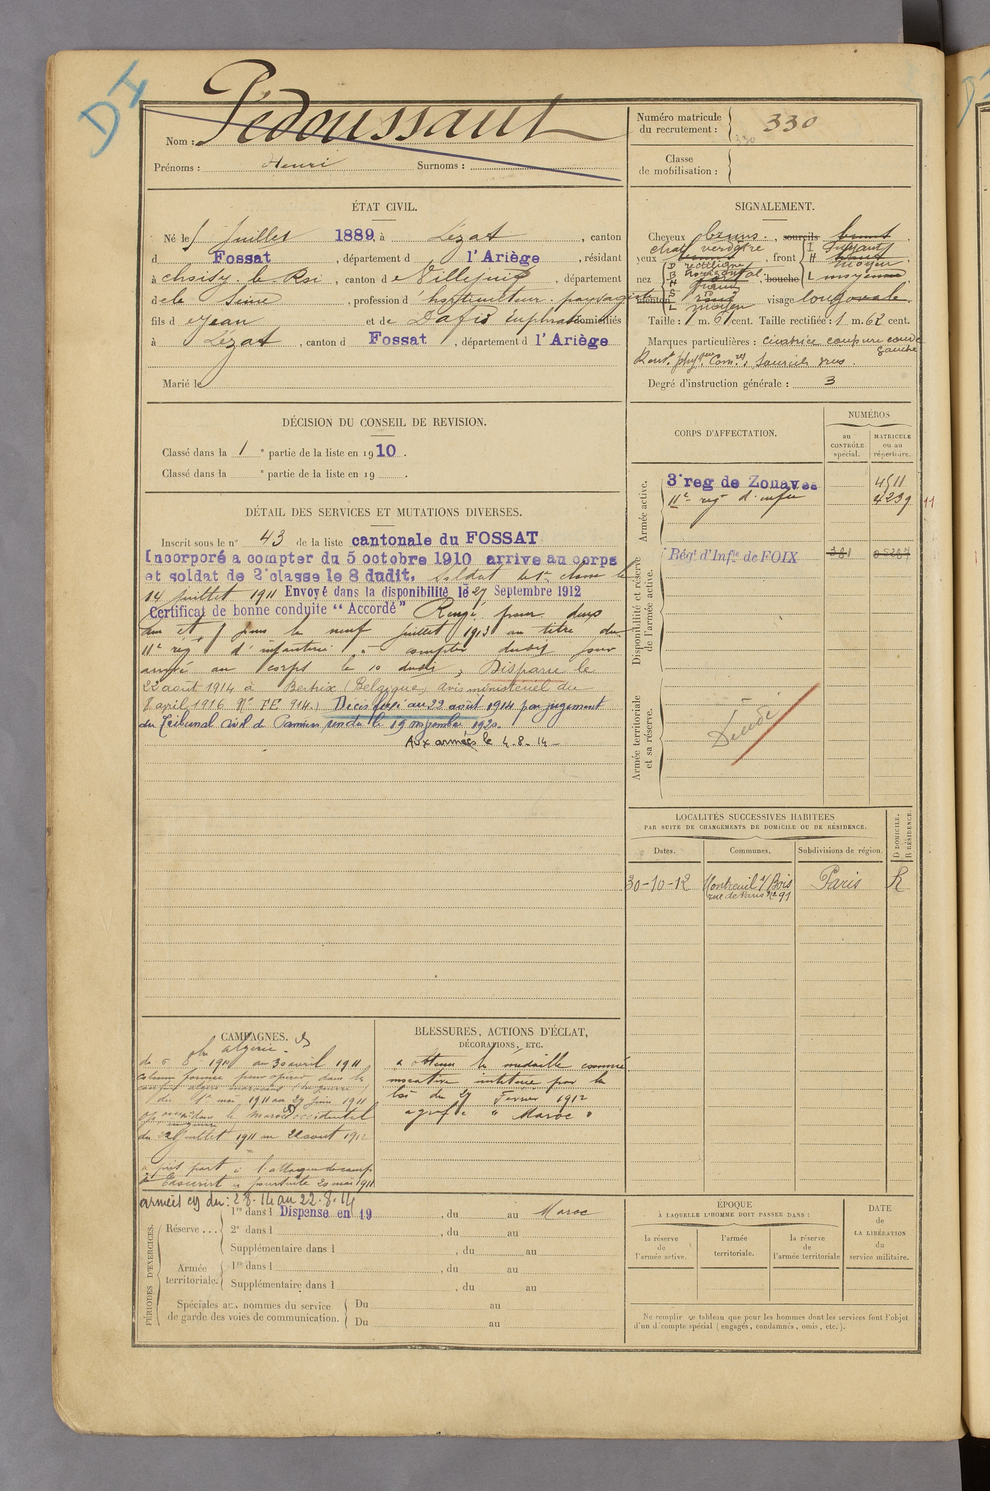 DI
Nom : Pédoussaut
Prénoms : Henri Surnoms :
Numéro matricule du recrutement : 330
330
Classe de mobilisation :
ÉTAT CIVIL.
Né le 5 Juillet 1889, à Lézat, canton
d Fossat, département d l'Ariège, résidant
à Choisy le Roi, canton de Villejuif, département
de la Seine, profession d horticulteur paysagiste
fils d e Jean et de Dafis Euphrasie domiciliés
à Lézat, canton d Fossat, département d l'Ariège
Marié le
SIGNALEMENT.
Cheveux bruns, sourcils bruns,
chat verdâtre
yeux, front I fuyant
H moyen
L moyenne
nez D rectiligne
B horizontal, bouche
H grand
menton S rond visage long ovale
L moyen
Taille : 1 m. 61 cent. Taille rectifiée : 1 m. 62 cent.
Marques particulières : cicatrice coupure coude gauche
Rens. physques Comres : Sourcils drus.
Degré d'instruction générale : 3
DÉCISION DU CONSEIL DE REVISION.
Classé dans la 1 e partie de la liste en 1910.
Classé dans la e partie de la liste en 19 .
DÉTAIL DES SERVICES ET MUTATIONS DIVERSES.
Inscrit sous le n° 43 de la liste cantonale du FOSSAT
Incorporé a compter du 5 octobre 1910 arrive au corps
et soldat de 2e classe le 8 dudit. Soldat de 1e classe le
14 juillet 1911 Envoyé dans la disponibilité le 27 Septembre 1912
Certificat de bonne conduite “ Accordé ” Rengé pour deux
ans et pour le neuf juillet 1913 au titre du
11e rég d'infanterie à compter dudit jour
arrivé au corps le 10 dudit, Disparu le
22 août 1914 à Bertrix (Belgique) avis ministériel du
8 april 1916 N° FE 914.) Décès fixé au 22 août 1914 par jugement
du Tribunal Civil de Pamiers rendu le 19 novembre 1920.
Aux armées le 4-8-14
CORPS D'AFFECTATION.
NUMÉROS
au CONTRÔLE spécial.
MATRICULE ou au répertoire.
Armée active.
3e reg de Zouaves 4511
11e rég d'infie 4239 11
Disponibilité et réserve de l'armée active.
Régt d'Infie de FOIX 381
Armée territoriale et sa réserve.
LOCALITÉS SUCCESSIVES HABITÉES
PAR SUITE DE CHANGEMENTS DE DOMICILE OU DE RÉSIDENCE.
Dates. Communes. Subdivisions de région. D DOMICILE. R RÉSIDENCE.
30-10-12 Montreuil s/ Bois Paris R
rue de Paris n° 91
CAMPAGNES.
Algérie.
du 5 8bre 1910 au 30 avril 1911
colonne formée pour opérer dans les
confins algéro marocains (en guerre)
du 1er mai 1911 au 27 juin 1911
dans le Maroc occidental
du 22 Juillet 1911 au 22 août 1912
a pris part à l'attaque du camp
poursuite 20 mai 1911
armées cg du : 2-8-14 au 22-8-14
BLESSURES, ACTIONS D'ÉCLAT,
DÉCORATIONS, ETC.
a obtenu la médaille commé
morative instituée par la
loi du 27 Février 1912
agrafe “ Maroc ”
PÉRIODES D'EXERCICES.
Réserve ... 1re dans l Dispense en 19 , du au Maroc
2e dans l , du au
Supplémentaire dans l , du au
Armée territoriale. 1re dans l , du au
Supplémentaire dans l , du au
Spéciales aux hommes du service de garde des voies de communication. Du au
Du au
ÉPOQUE
À LAQUELLE L'HOMME DOIT PASSER DANS :
la réserve de l'armée active.
l'armée territoriale.
la réserve de l'armée territoriale
DATE de LA LIBÉRATION du service militaire.
Ne remplir ce tableau que pour les hommes dont les services font l'objet
d'un décompte spécial (engagés, condamnés, omis, etc.).